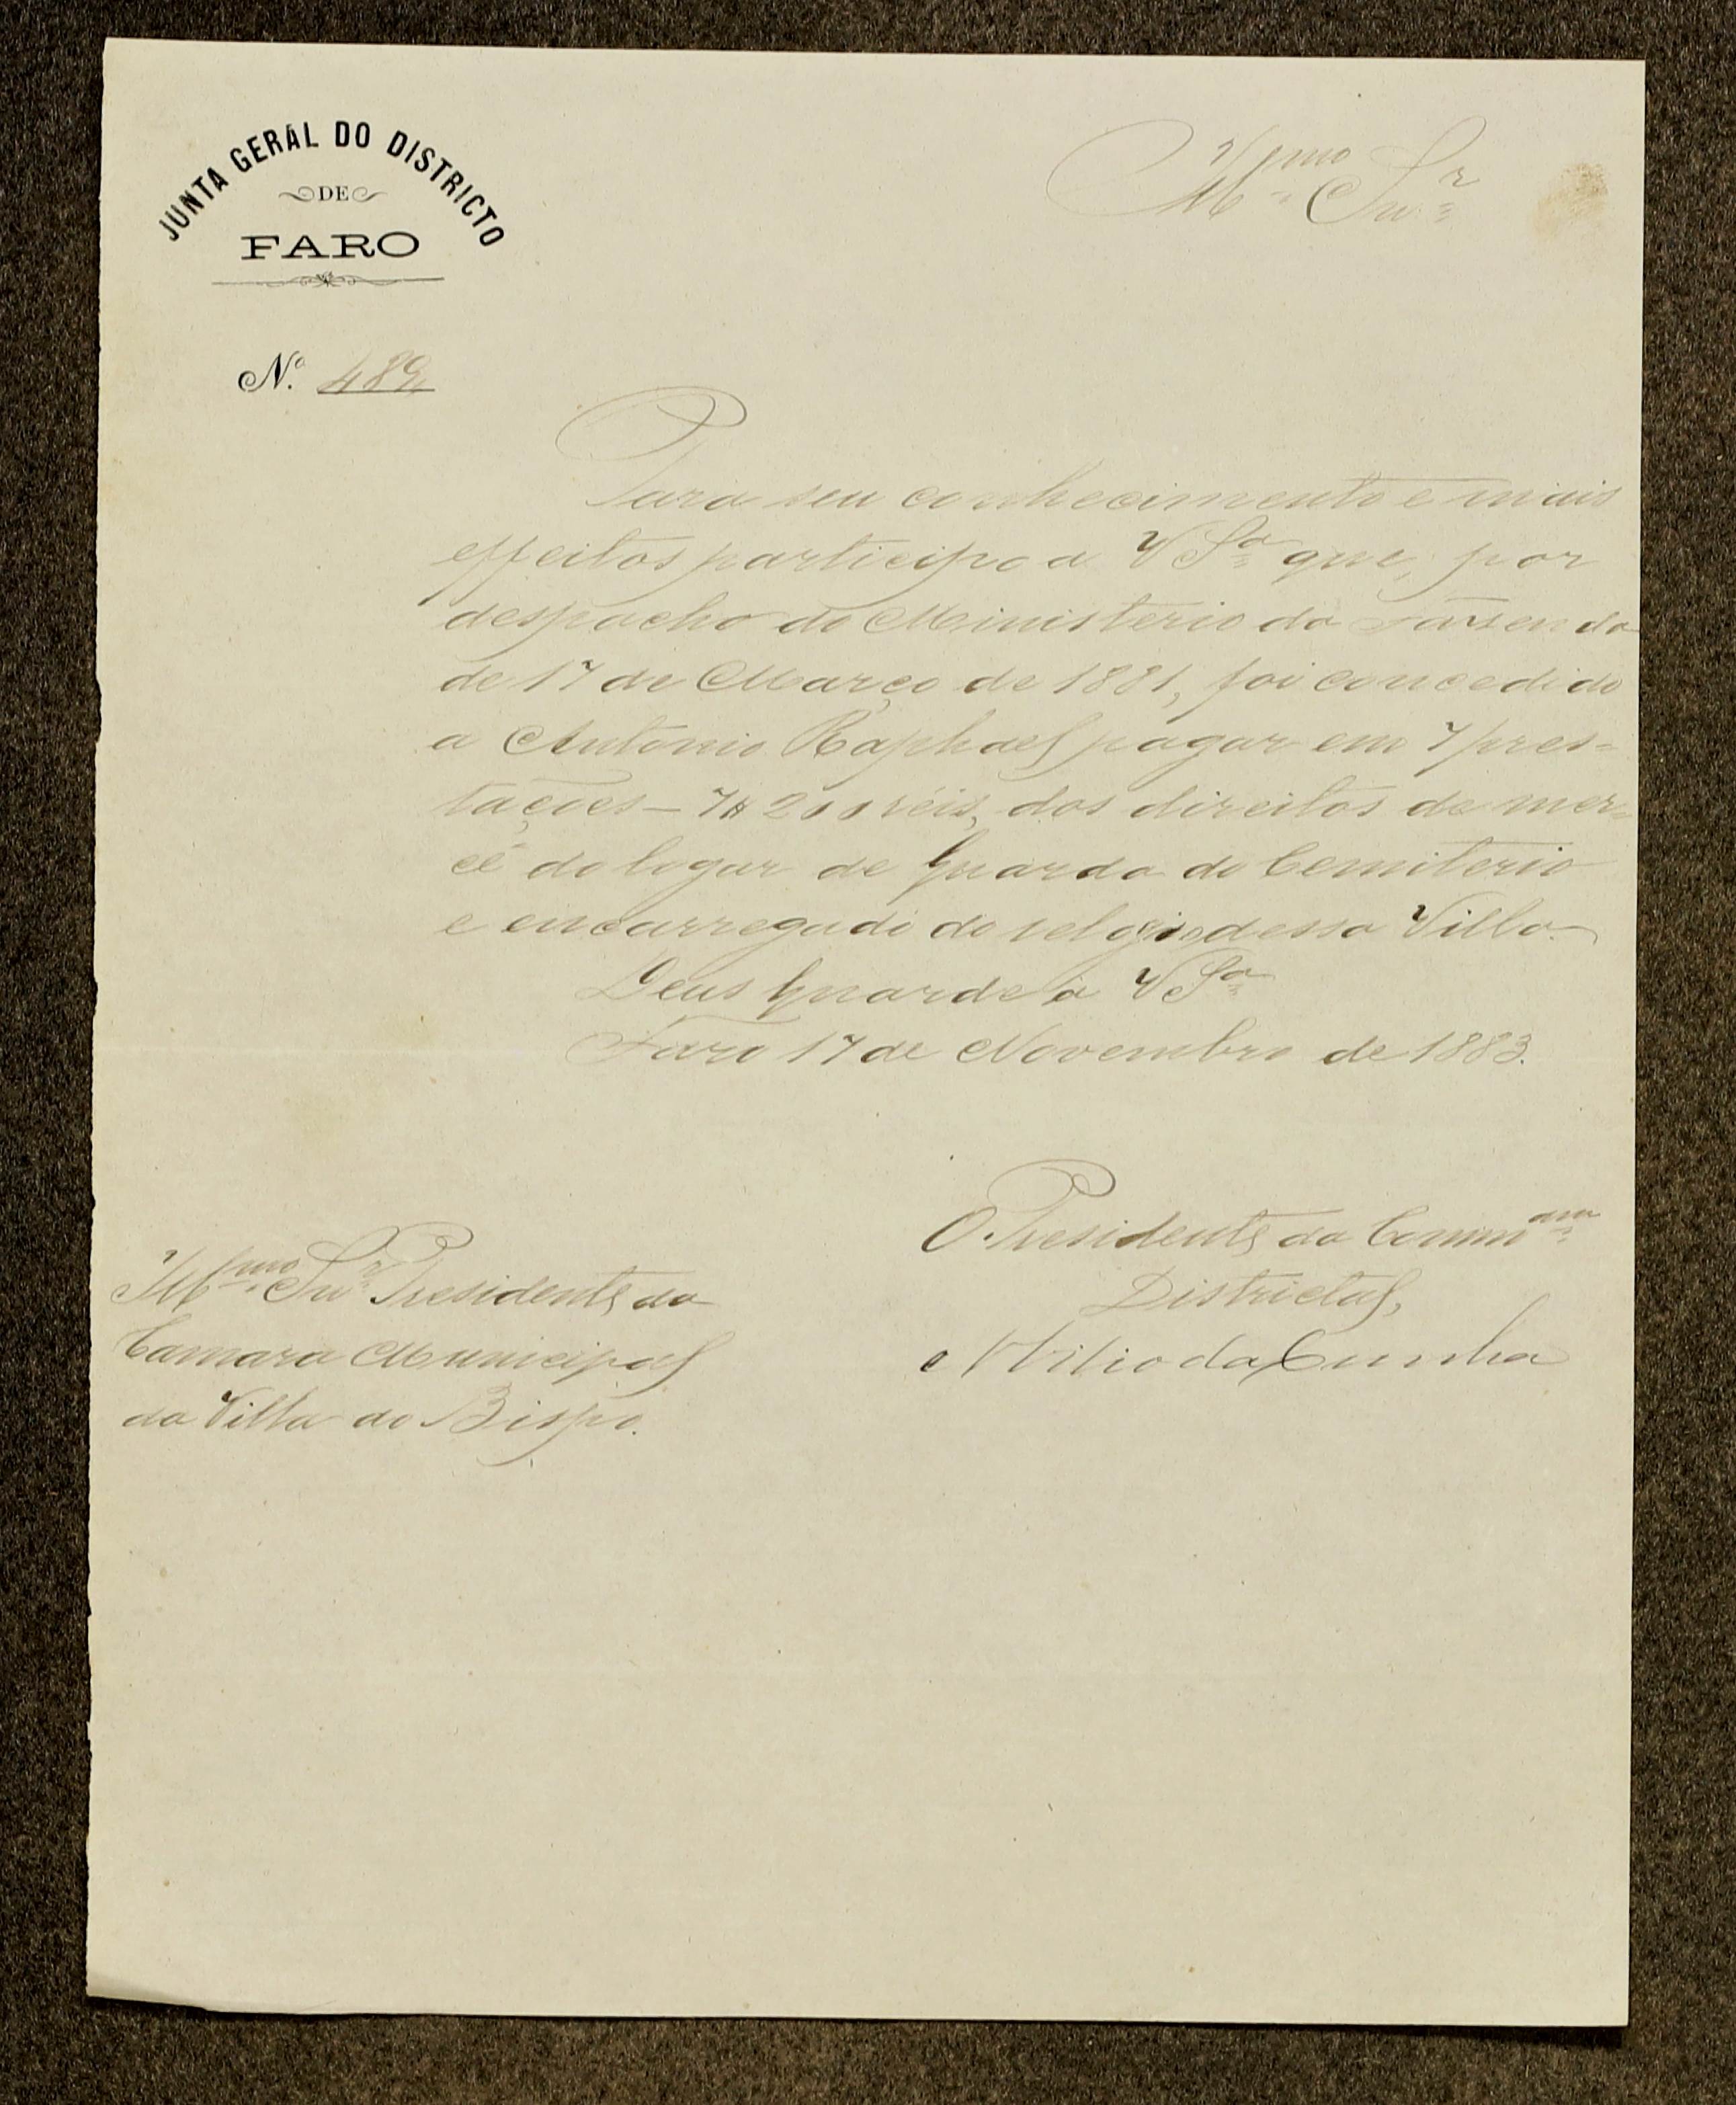 JUNTA GERAL DO DISTRICTO
DE
FARO
Illmo Snr
N.º 489
Para seu conhecimento e mais
effeitos participo a V Sa que, por
despacho do Ministerio da Fasenda
de 17 de Março de 1881, foi concedido
a Antonio Raphael pagar em 7 pres-
tações — 7$200 réis, dos direitos de mer-
cê do logar de Guarda do Cemiterio
e encarregado do relogio dessa Villa.
Deus Guarde a V Sa
Faro 17 de Novembro de 1883.
O Presidente da Commam
Districtal,
Illmo Snr Presidente da
Camara Municipal
da Villa do Bispo.
da Cunha